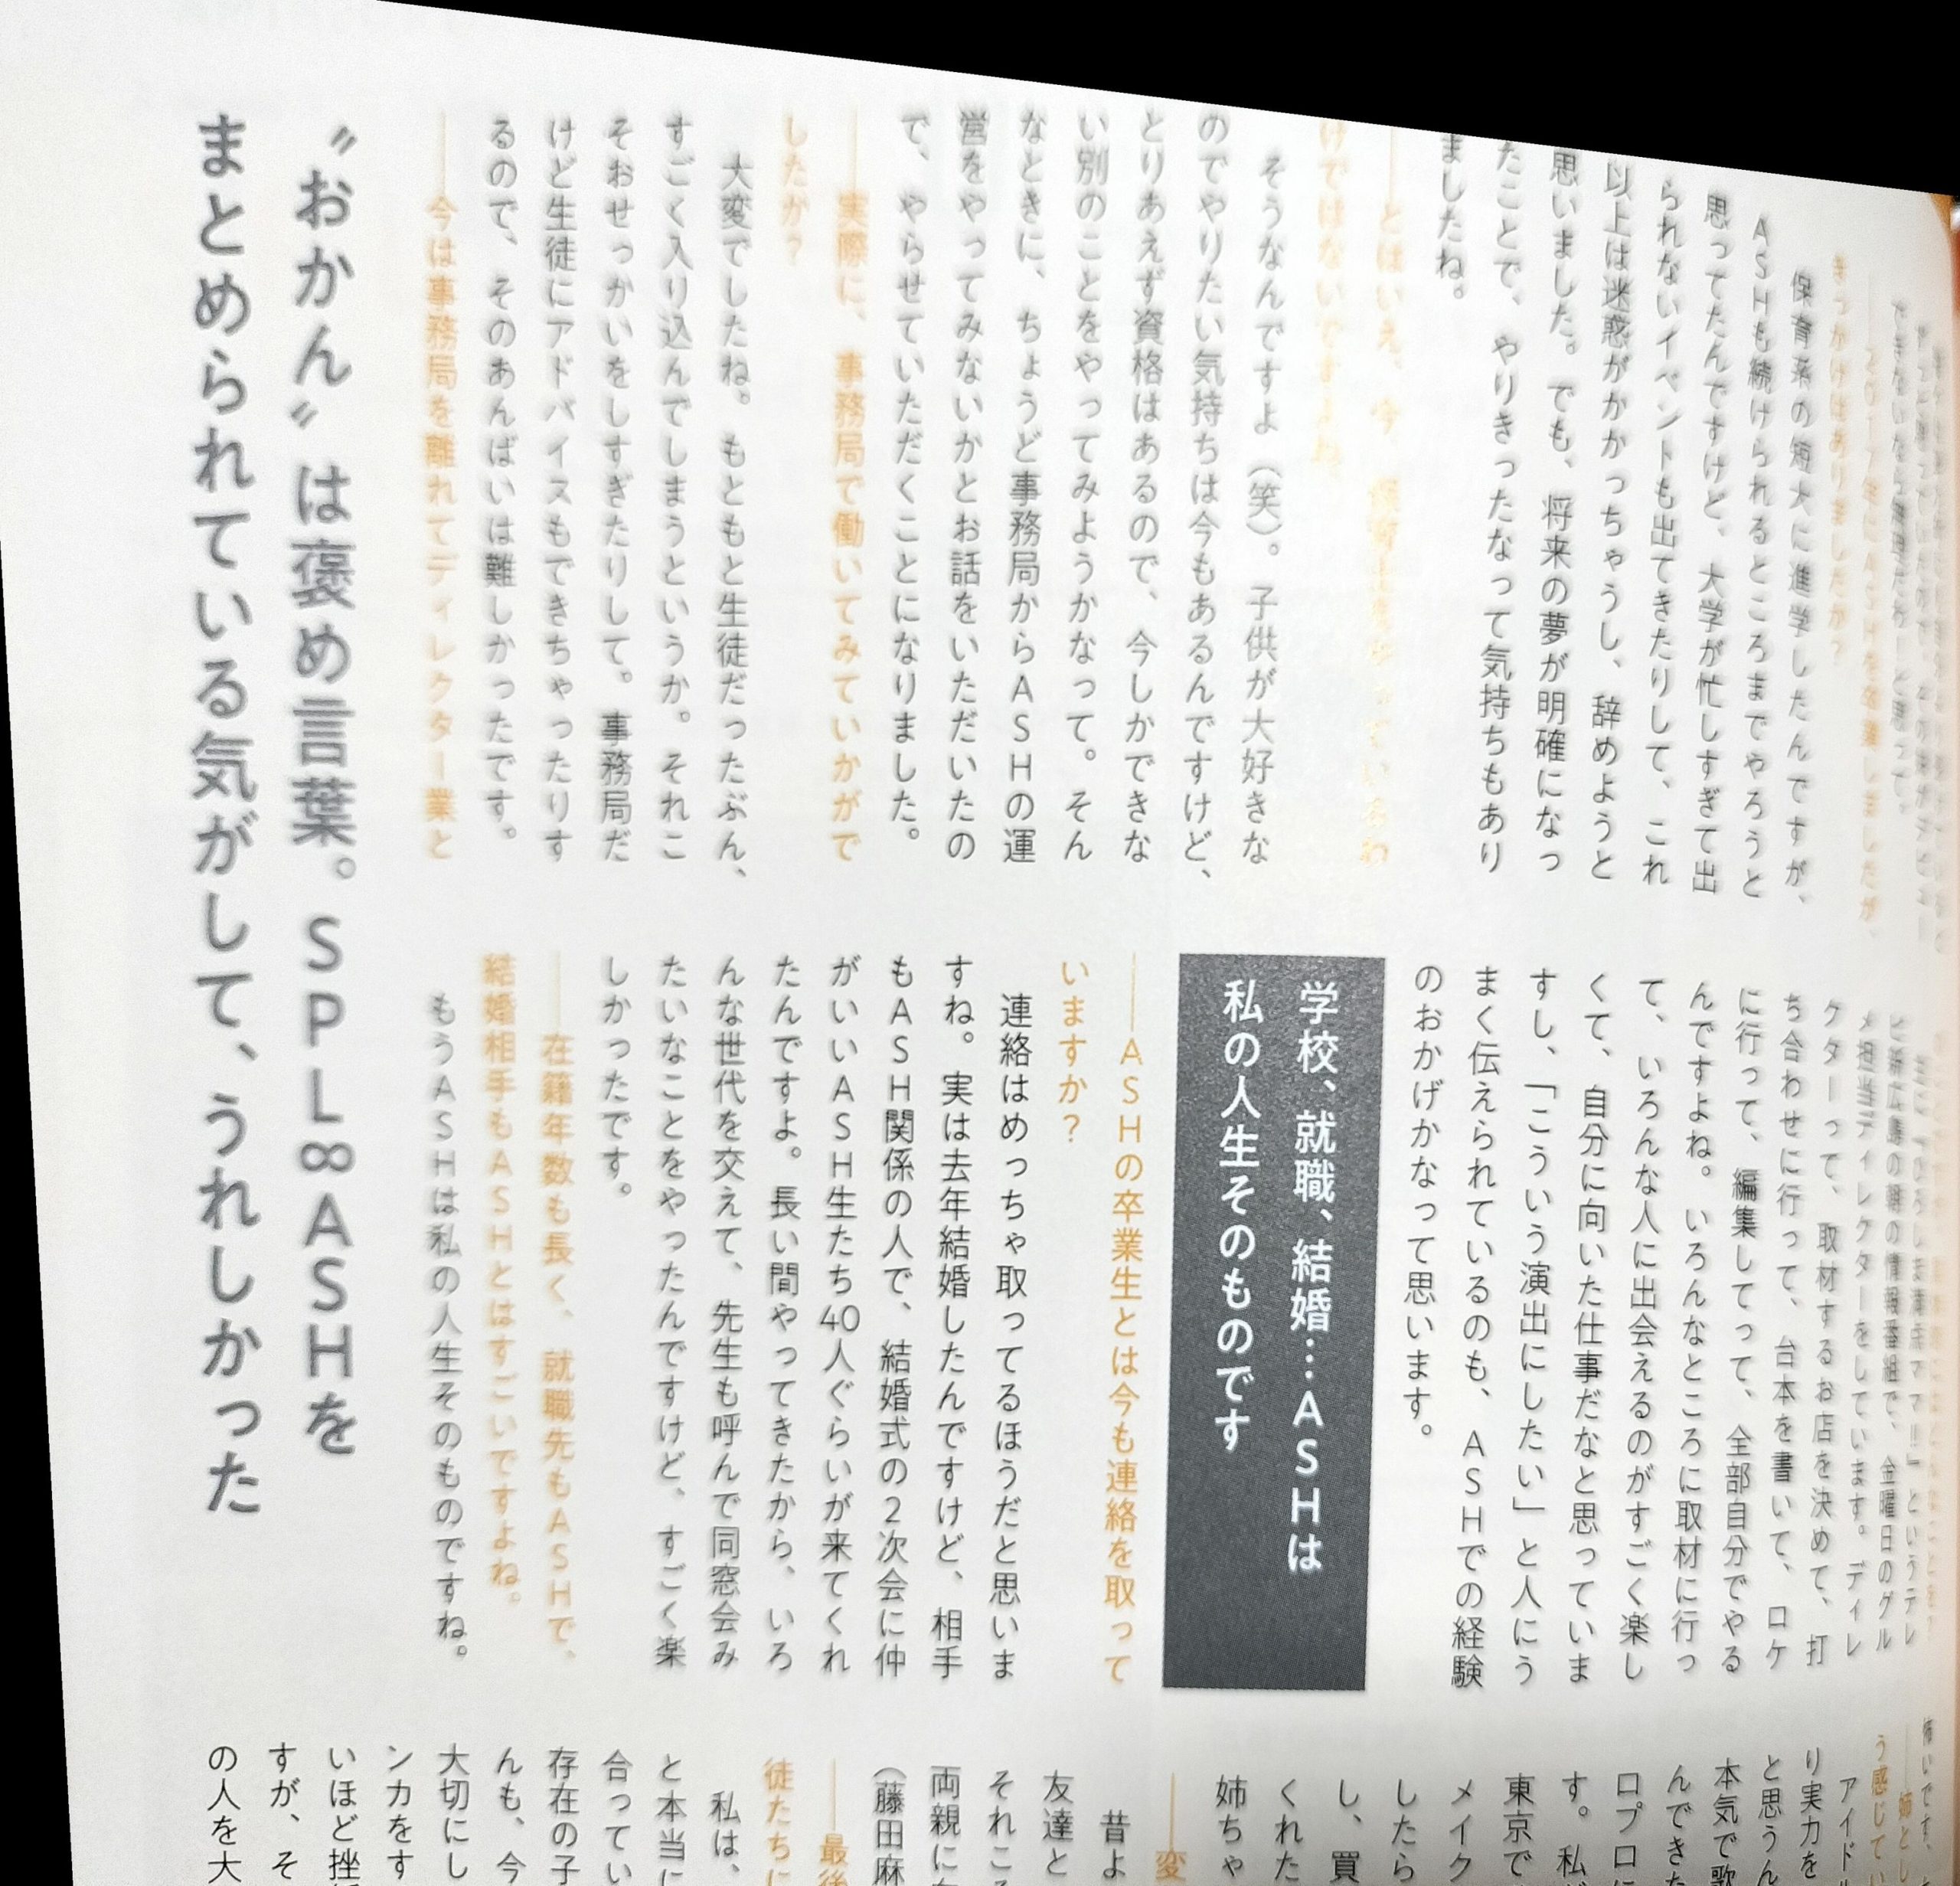 できないなら無理だなーと思って。
きっかけはありましたか？
保育系の短大に進学したんですが、
ASHも続けられるところまでやろうと
思ってたんですけど、大学が忙しすぎて出
られないイベントも出てきたりして、これ
以上は迷惑がかかっちゃうし、辞めようと
思いました。でも、将来の夢が明確になっ
たことで、やりきったなって気持ちもあり
ましたね。
――とはいえ、今、保育士をやっているわ
けではないですよね。
そうなんですよ（笑）。子供が大好きな
のでやりたい気持ちは今もあるんですけど、
とりあえず資格はあるので、今しかできな
い別のことをやってみようかなって。そん
なときに、ちょうど事務局からASHの運
営をやってみないかとお話をいただいたの
で、やらせていただくことになりました。
――実際に、事務局で働いてみていかがで
したか？
大変でしたね。もともと生徒だったぶん、
すごく入り込んでしまうというか。それこ
そおせっかいをしすぎたりして。事務局だ
けど生徒にアドバイスもできちゃったりす
るので、そのあんばいは難しかったです。
――今は事務局を離れてディレクター業と
〝おかん〟は褒め言葉。SPL∞ASHを
まとめられている気がして、うれしかった
メ担当ディレクターをしています。ディレ
クターって、取材するお店を決めて、打
ち合わせに行って、台本を書いて、ロケ
に行って、編集してって、全部自分でやる
んですよね。いろんなところに取材に行っ
て、いろんな人に出会えるのがすごく楽し
くて、自分に向いた仕事だなと思っていま
すし、「こういう演出にしたい」と人にう
まく伝えられているのも、ASHでの経験
のおかげかなって思います。
学校、就職、結婚…ASHは
私の人生そのものです
――ASHの卒業生とは今も連絡を取って
いますか？
連絡はめっちゃ取ってるほうだと思いま
すね。実は去年結婚したんですけど、相手
もASH関係の人で、結婚式の2次会に仲
がいいASH生たち40人ぐらいが来てくれ
たんですよ。長い間やってきたから、いろ
んな世代を交えて、先生も呼んで同窓会み
たいなことをやったんですけど、すごく楽
しかったです。
――在籍年数も長く、就職先もASHで、
結婚相手もASHとはすごいですよね。
もうASHは私の人生そのものですね。
う感じてい
アイドル
り実力を
と思うん
本気で歌
んできた
ロプロに
す。私が
東京で
メイク
したら
し、買
くれた
姉ちゃ
――変
昔よ
友達と
それこそ
両親に
（藤田麻
――最後
徒たちに
私は、
と本当に
合ってい
存在の子
んも、今
大切にし
ンカをす
いほど挫
すが、そ
の人を大